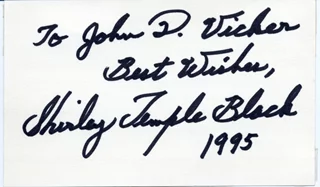 To John D. Vicker
Best Wishes,
Shirley Temple Black
1995